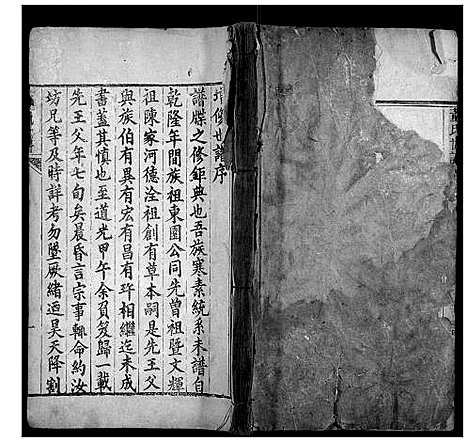 增俊世譜序
譜牒之修鉅典也吾族寒素統系未譜自
乾隆年間族祖東園公同先曾祖暨文輝
祖陳家河德洤祖創有草本嗣是先王父
與族伯有異有宏有昌有玶相繼迄未成
書蓋其慎也至道光甲午余負笈歸一載
先王父年七旬矣晨昏言宗事輒命約汝
坊兄等及時詳考勿墜厥緒迺昊天降割